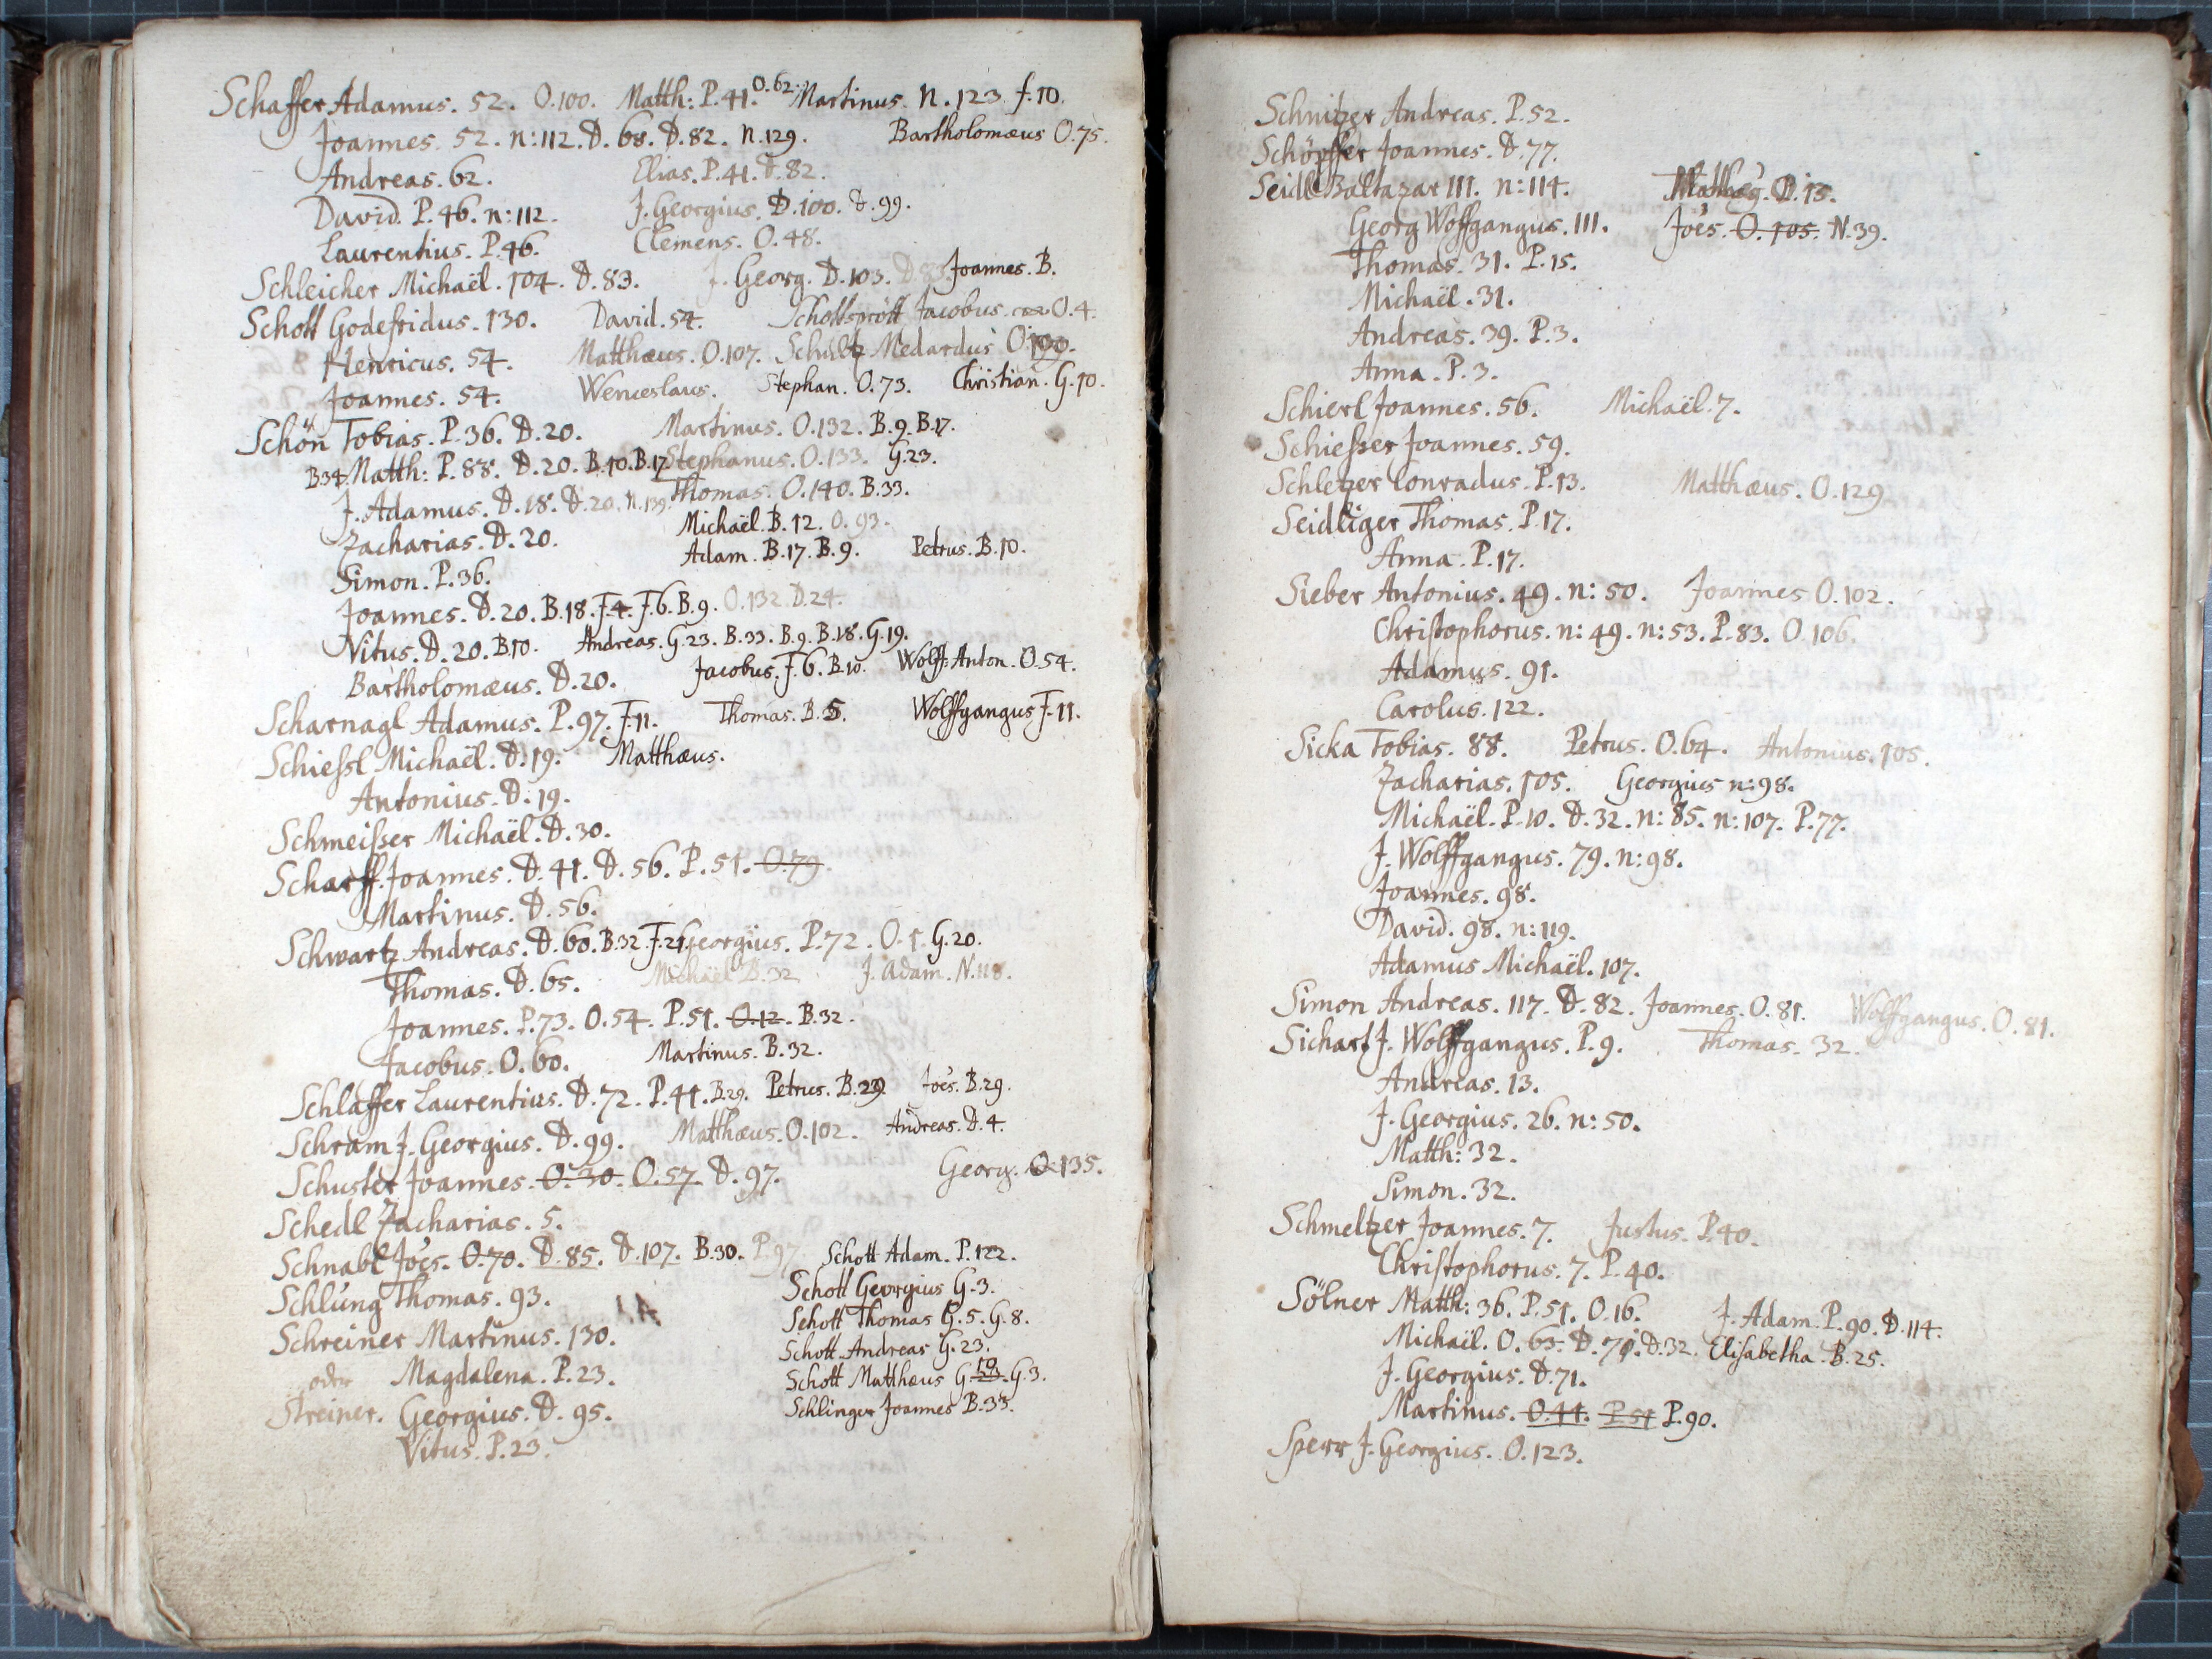 Schaffer Adamus. 52. O.100. Matth: P.41. O.62. Martinus. N.123. f.10.
Joannes. 52. n:112. D.68. D.82. N.129. Bartholomæus O.75.
Andreas. 62. Elias. P.41. D.82.
David. P.46. n:112. J. Georgius. D.100. D.99.
Laurentius. P.46. Clemens. O.48.
Schleicher Michaël. 104. D.83. J. Georg. D.103. D.83. Joannes. B.
Schott Godefridus. 130. David. 54. Schottsprött Jacobus. O.4.
Henricus. 54. Matthæus. O.107. Schultz Medardus O.199.
Joannes. 54. Wenceslaus. Stephan. O.73. Christian. G.10.
Schön Tobias. P.36. D.20. Martinus. O.132. B.9. B.17.
B.34. Matth: P.88. D.20. B.10. B.17. Stephanus. O.133. G.23.
J. Adamus. D.18. D.20. N.139. Thomas. O.140. B.33.
Zacharias. D.20. Michaël. B.12. O.93.
Simon. P.36. Adam. B.17. B.9. Petrus. B.10.
Joannes. D.20. B.18. F.4. F.6. B.9. O.132. D.24.
Vitus. D.20. B.10. Andreas. G.23. B.33. B.9. B.18. G.19.
Bartholomæus. D.20. Jacobus. F.6. B.10. Wolff: Anton. O.54.
Scharnagl Adamus. P.97. F.11. Thomas. B.5. Wolffgangus F.11.
Schiessl Michaël. D.19. Matthæus.
Antonius. D.19.
Schmeisser Michaël. D.30.
Scharff Joannes. D.41. D.56. P.51. O.79.
Martinus. D.56.
Schwartz Andreas. D.60. B.32. F.21. Georgius. P.72. O.1. G.20.
Thomas. D.65. Michaël B.32. J. Adam. N.118.
Joannes. P.73. O.54. P.51. O.12. B.32.
Jacobus. O.60. Martinus. B.32.
Schlaffer Laurentius. D.72. P.44. B.29. Petrus. B.29. Joes. B.29.
Schram J. Georgius. D.99. Matthæus. O.102. Andreas. D.4.
Schuster Joannes. O.30. O.57. D.97. Georg. O.135.
Schedl Zacharias. 5.
Schnabl Joes. O.70. D.85. D.107. B.30. P.97. Schott Adam. P.122.
Schlüng Thomas. 93. Schott Georgius G.3.
Schreiner Martinus. 130. Schott Thomas G.5. G.8.
oder Magdalena. P.23. Schott Andreas G.23.
Streiner. Georgius. D.95. Schott Matthæus G.10. G.3.
Vitus. P.23. Schlinger Joannes B.33.
Schnitzer Andreas. P.52.
Schöpffer Joannes. D.77.
Seidl Baltazar 111. n:114. D.15.
Georg Wolffgangus. 111. Joes. O.105. N.39.
Thomas. 31. P.15.
Michaël. 31.
Andreas. 39. P.3.
Anna. P.3.
Schierl Joannes. 56. Michaël. 7.
Schiesser Joannes. 59.
Schletzer Conradus. P.13. Matthæus. O.129
Seidliger Thomas. P.17.
Anna. P.17.
Sieber Antonius. 49. n:50. Joannes O.102.
Christophorus. n:49. n:53. P.83. O.106.
Adamus. 91.
Carolus. 122.
Sicka Tobias. 88. Petrus. O.64. Antonius. 105.
Zacharias. 105. Georgius n:98.
Michaël. P.10. D.32. n:85. n:107. P.77.
J. Wolffgangus. 79. n:98.
Joannes. 98.
David. 98. n:119.
Adamus Michaël. 107.
Simon Andreas. 117. D.82. Joannes. O.81. Wolffgangus. O.81.
Sichart J. Wolffgangus. P.9. Thomas. 32.
Andreas. 13.
J. Georgius. 26. n:50.
Matth: 32.
Simon. 32.
Schmeltzer Joannes. 7. Justus. P.40.
Christophorus. 7. P.40.
Sölner Matth: 36. P.51. O.16. J. Adam. P.90. D.114.
Michaël. O.63. D.71. D.32. Elisabetha. B.25.
J. Georgius. D.71.
Martinus. O.44. P.51 P.90.
Sperr J. Georgius. O.123.